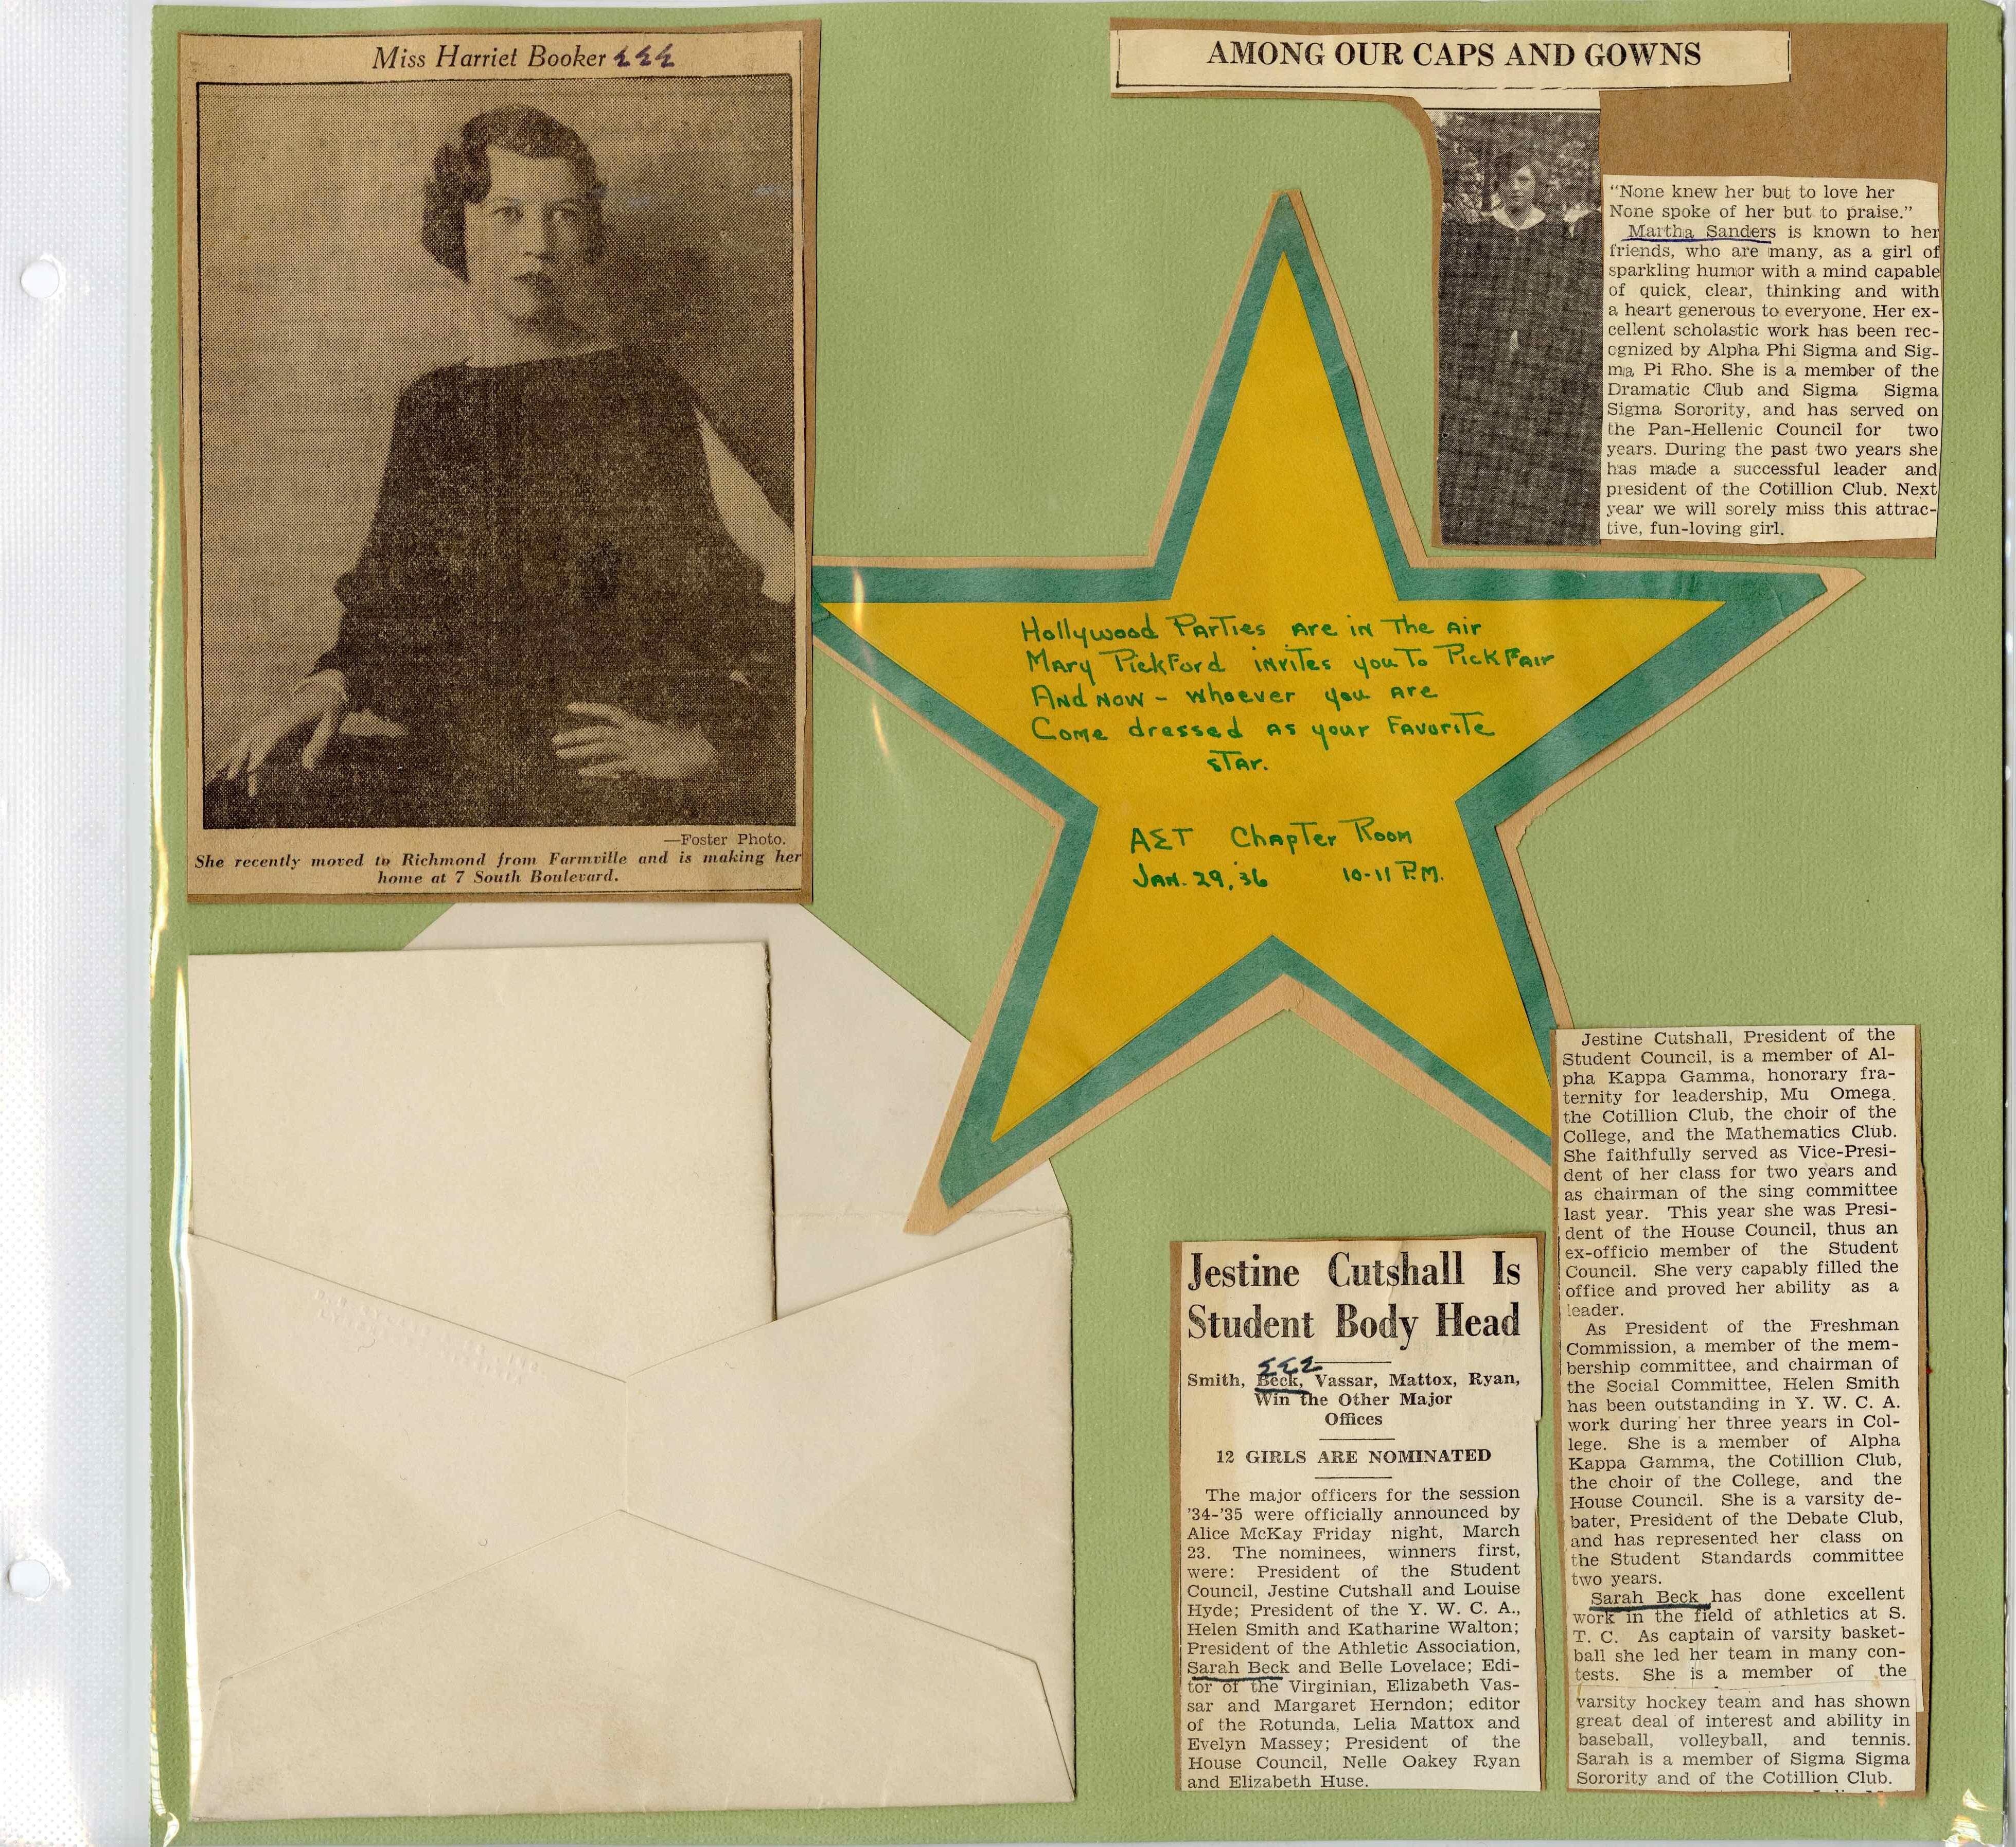 Miss Harriet Booker ΣΣΣ
—Foster Photo.
She recently moved to Richmond from Farmville and is making her
home at 7 South Boulevard.
AMONG OUR CAPS AND GOWNS
"None knew her but to love her
None spoke of her but to praise."
Martha Sanders is known to her
friends, who are many, as a girl of
sparkling humor with a mind capable
of quick, clear, thinking and with
a heart generous to everyone. Her ex-
cellent scholastic work has been rec-
ognized by Alpha Phi Sigma and Sig-
ma Pi Rho. She is a member of the
Dramatic Club and Sigma Sigma
Sigma Sorority, and has served on
the Pan-Hellenic Council for two
years. During the past two years she
has made a successful leader and
president of the Cotillion Club. Next
year we will sorely miss this attrac-
tive, fun-loving girl.
Hollywood Parties are in The Air
Mary Pickford invites you To PickFair
And now - whoever you are
Come dressed as your Favorite
STar.
AΣT Chapter Room
Jan. 29, '36 10-11 P.M.
Jestine Cutshall Is
Student Body Head
ΣΣΣ
Smith, Beck, Vassar, Mattox, Ryan,
Win the Other Major
Offices
12 GIRLS ARE NOMINATED
The major officers for the session
'34-'35 were officially announced by
Alice McKay Friday night, March
23. The nominees, winners first,
were: President of the Student
Council, Jestine Cutshall and Louise
Hyde; President of the Y. W. C. A.,
Helen Smith and Katharine Walton;
President of the Athletic Association,
Sarah Beck and Belle Lovelace; Edi-
tor of the Virginian, Elizabeth Vas-
sar and Margaret Herndon; editor
of the Rotunda, Lelia Mattox and
Evelyn Massey; President of the
House Council, Nelle Oakey Ryan
and Elizabeth Huse.
Jestine Cutshall, President of the
Student Council, is a member of Al-
pha Kappa Gamma, honorary fra-
ternity for leadership, Mu Omega,
the Cotillion Club, the choir of the
College, and the Mathematics Club.
She faithfully served as Vice-Presi-
dent of her class for two years and
as chairman of the sing committee
last year. This year she was Presi-
dent of the House Council, thus an
ex-officio member of the Student
Council. She very capably filled the
office and proved her ability as a
leader.
As President of the Freshman
Commission, a member of the mem-
bership committee, and chairman of
the Social Committee, Helen Smith
has been outstanding in Y. W. C. A.
work during her three years in Col-
lege. She is a member of Alpha
Kappa Gamma, the Cotillion Club,
the choir of the College, and the
House Council. She is a varsity de-
bater, President of the Debate Club,
and has represented her class on
the Student Standards committee
two years.
Sarah Beck has done excellent
work in the field of athletics at S.
T. C. As captain of varsity basket-
ball she led her team in many con-
tests. She is a member of the
varsity hockey team and has shown
great deal of interest and ability in
baseball, volleyball, and tennis.
Sarah is a member of Sigma Sigma
Sorority and of the Cotillion Club.